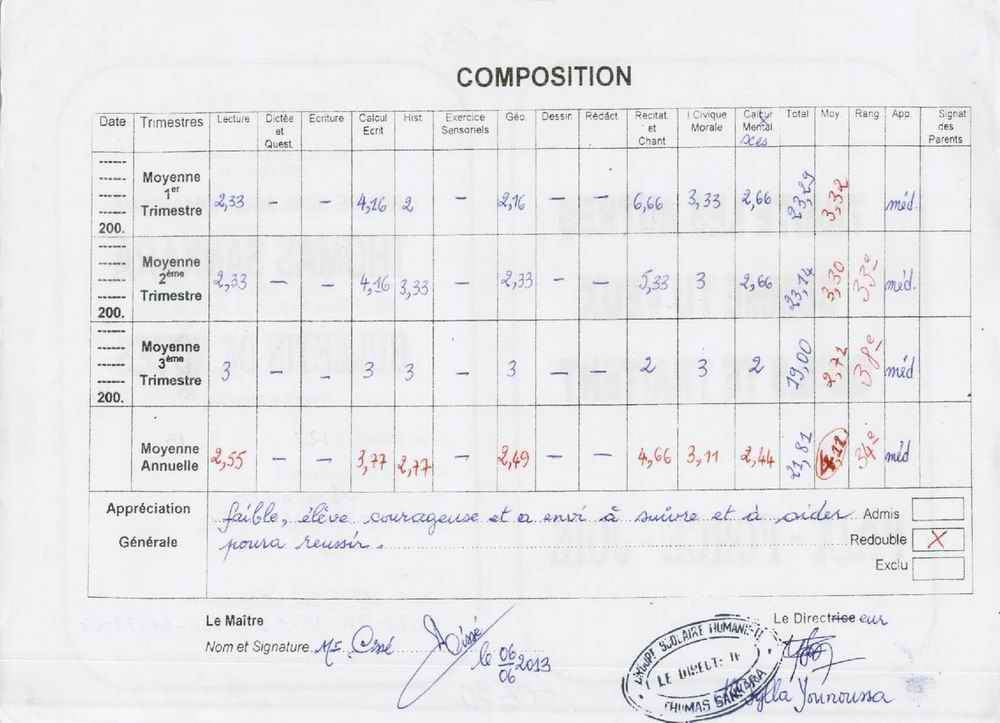 COMPOSITION
Date Trimestres Lecture Dictée et Quest. Ecriture Calcul Ecrit Hist. Exercice Sensoriels Géo. Dessin Rédact. Recitat. et Chant I Civique Morale Calcul Mental Sces Total Moy. Rang. App. Signat des Parents
------ 200. Moyenne 1er Trimestre 2,33 – – 4,16 2 – 2,16 – – 6,66 3,33 2,66 23,29 3,32 méd.
------ 200. Moyenne 2ème Trimestre 2,33 – – 4,16 3,33 – 2,33 – – 5,33 3 2,66 23,14 3,30 33e méd.
------ 200. Moyenne 3ème Trimestre 3 – – 3 3 – 3 – – 2 3 2 19,00 2,71 38e méd
Moyenne Annuelle 2,55 – – 3,77 2,77 – 2,49 – – 4,66 3,11 2,44 21,81 34e méd
Appréciation Générale
faible, élève courageuse et a envi à suivre et à aider Admis
poura reussir. Redouble X
Exclu
Le Maître Le Directrice eur
Nom et Signature Mr Cissé Cissé le 06/06 2013
GROUPE SCOLAIRE
LE DIRECTEUR
THOMAS SANKARA
Sylla Younoussa